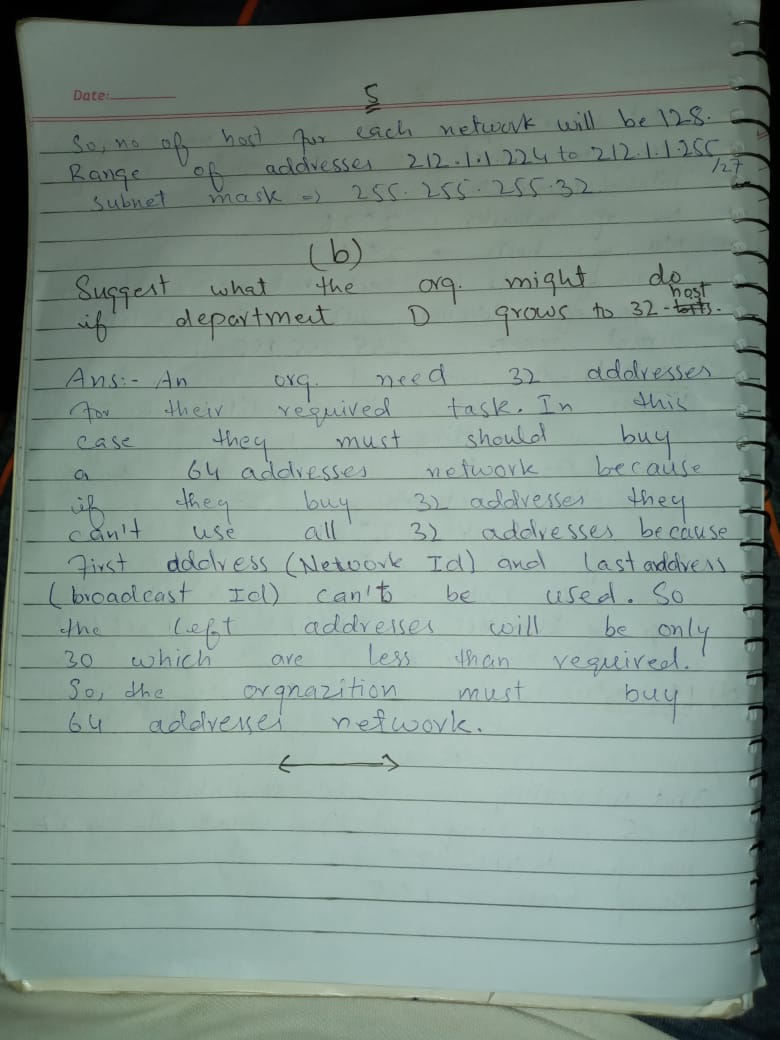 Date:
5
So, no of host for each network will be 128.
Range of addresses 212.1.1.224 to 212.1.1.255
/27
Subnet mask => 255.255.255.32
(b)
Suggest what the org. might do
if department D grows to 32-host.
Ans:- An org. need 32 addresses
for their required task. In this
case they must should buy
a 64 addresses network because
if they buy 32 addresses they
can't use all 32 addresses because
First address (Network Id) and last address
(broadcast Id) can't be used. So
the left addresses will be only
30 which are less than required.
So, the orgnazition must buy
64 addresses network.